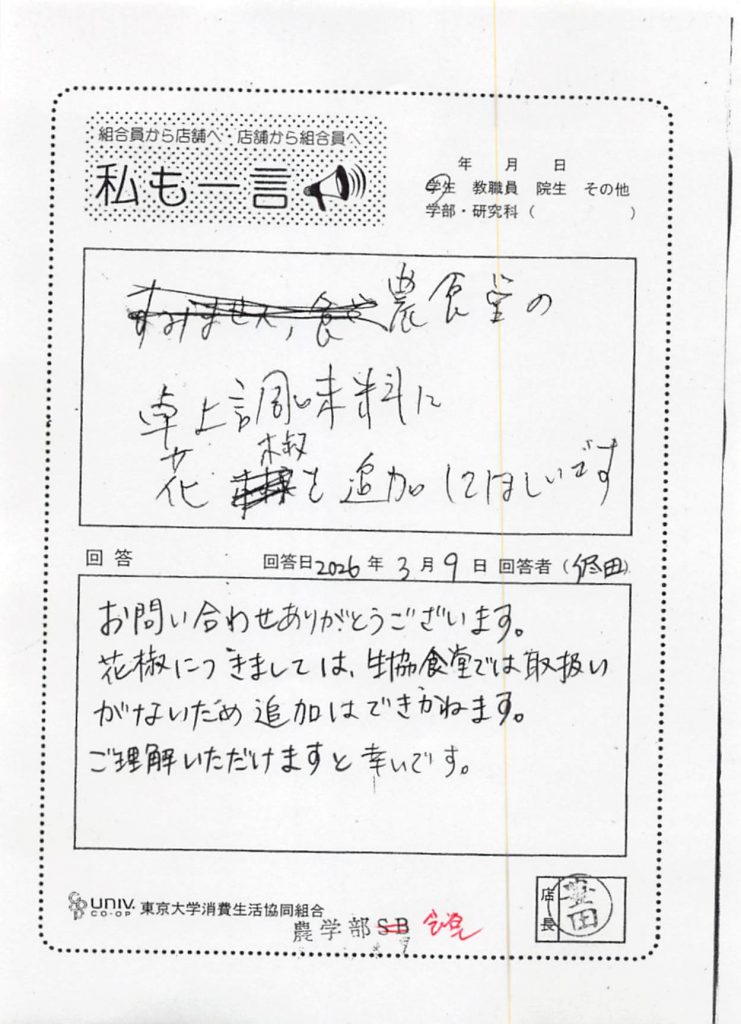 組合員から店舗へ・店舗から組合員へ
私も一言
年 月 日
学生 教職員 院生 その他
学部・研究科( )
すみません,食堂農食堂の
卓上調味料に
花椒を追加してほしいです
回答 回答日2026年3月9日 回答者(田)
お問い合わせありがとうございます。
花椒につきましては、生協食堂では取扱い
がないため追加はできかねます。
ご理解いただけますと幸いです。
UNIV. CO-OP 東京大学消費生活協同組合
農学部SB
店長 豊田